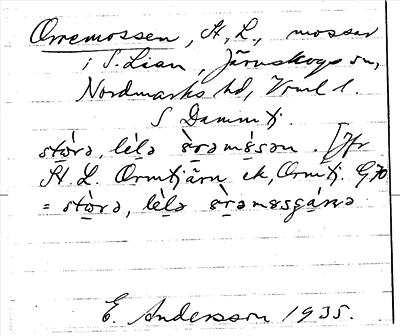 Orremossen, St, L., mossar
i S. Lian, Järnskogs sn,
Nordmarks hd, Vrml l.
S Dammtj.
stǫ̀rə, lèlə ɛ̀rəmɞ́sən. [Jfr
St L. Ormtjärn ek, Ormtj. G70
= stǫ̀rə, lèlə ɛ̀rəmɞsgáɳə
E. Andersson 1935.